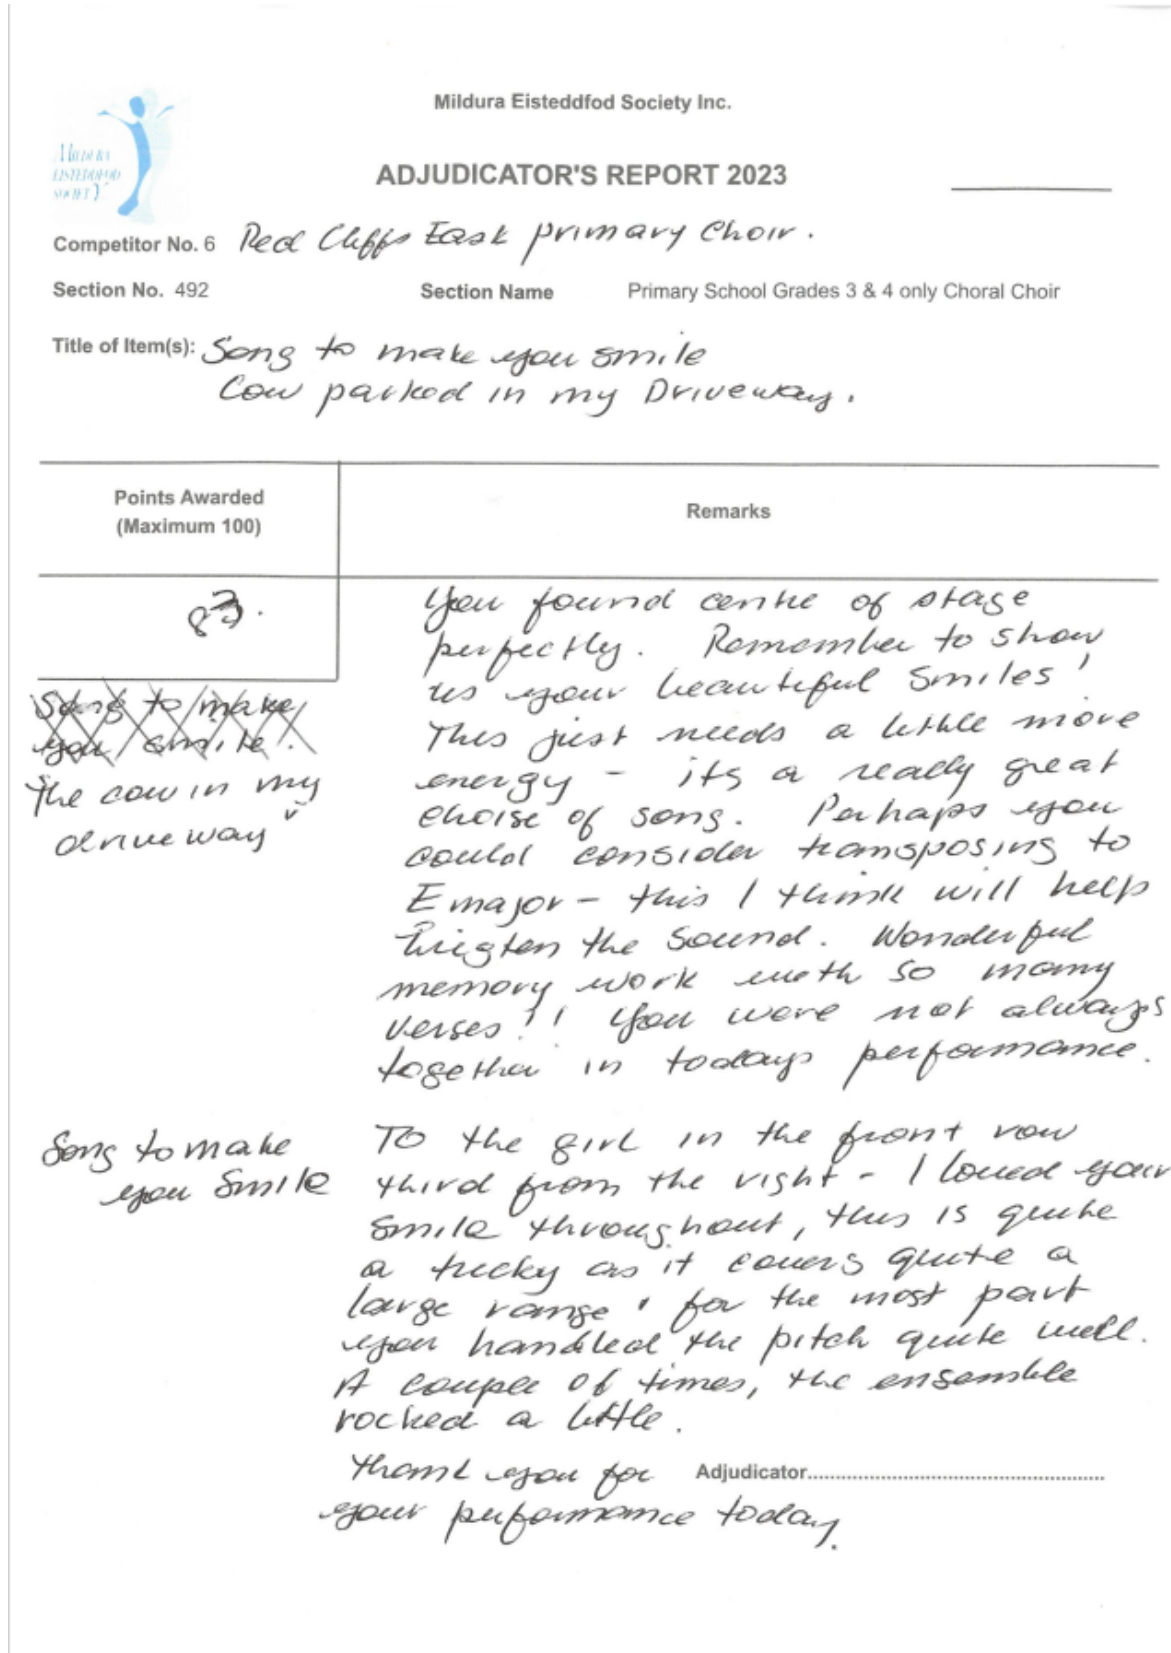 Mildura Eisteddfod Society Inc.
MILDURA
EISTEDDFOD
SOCIETY
ADJUDICATOR'S REPORT 2023
Competitor No. 6 Red Cliffs East primary Choir.
Section No. 492 Section Name Primary School Grades 3 & 4 only Choral Choir
Title of Item(s): Song to make you smile
Cow parked in my Driveway.
Points Awarded
(Maximum 100)
Remarks
83.
Song to make
you smile.
The cow in my
driveway
You found centre of stage
perfectly. Remember to show
us your beautiful smiles!
This just needs a little more
energy - its a really great
choise of song. Perhaps you
could consider transposing to
E major - this I think will help
the sound. Wonderful
memory work with so many
verses!! You were not always
together in todays performance.
Song to make
you Smile
To the girl in the front row
third from the right - I loved your
smile throughout, this is quite
a tricky as it covers quite a
large range! for the most part
you handled the pitch quite well.
A couple of times, the ensemble
rocked a little.
Thank you for
your performance today.
Adjudicator